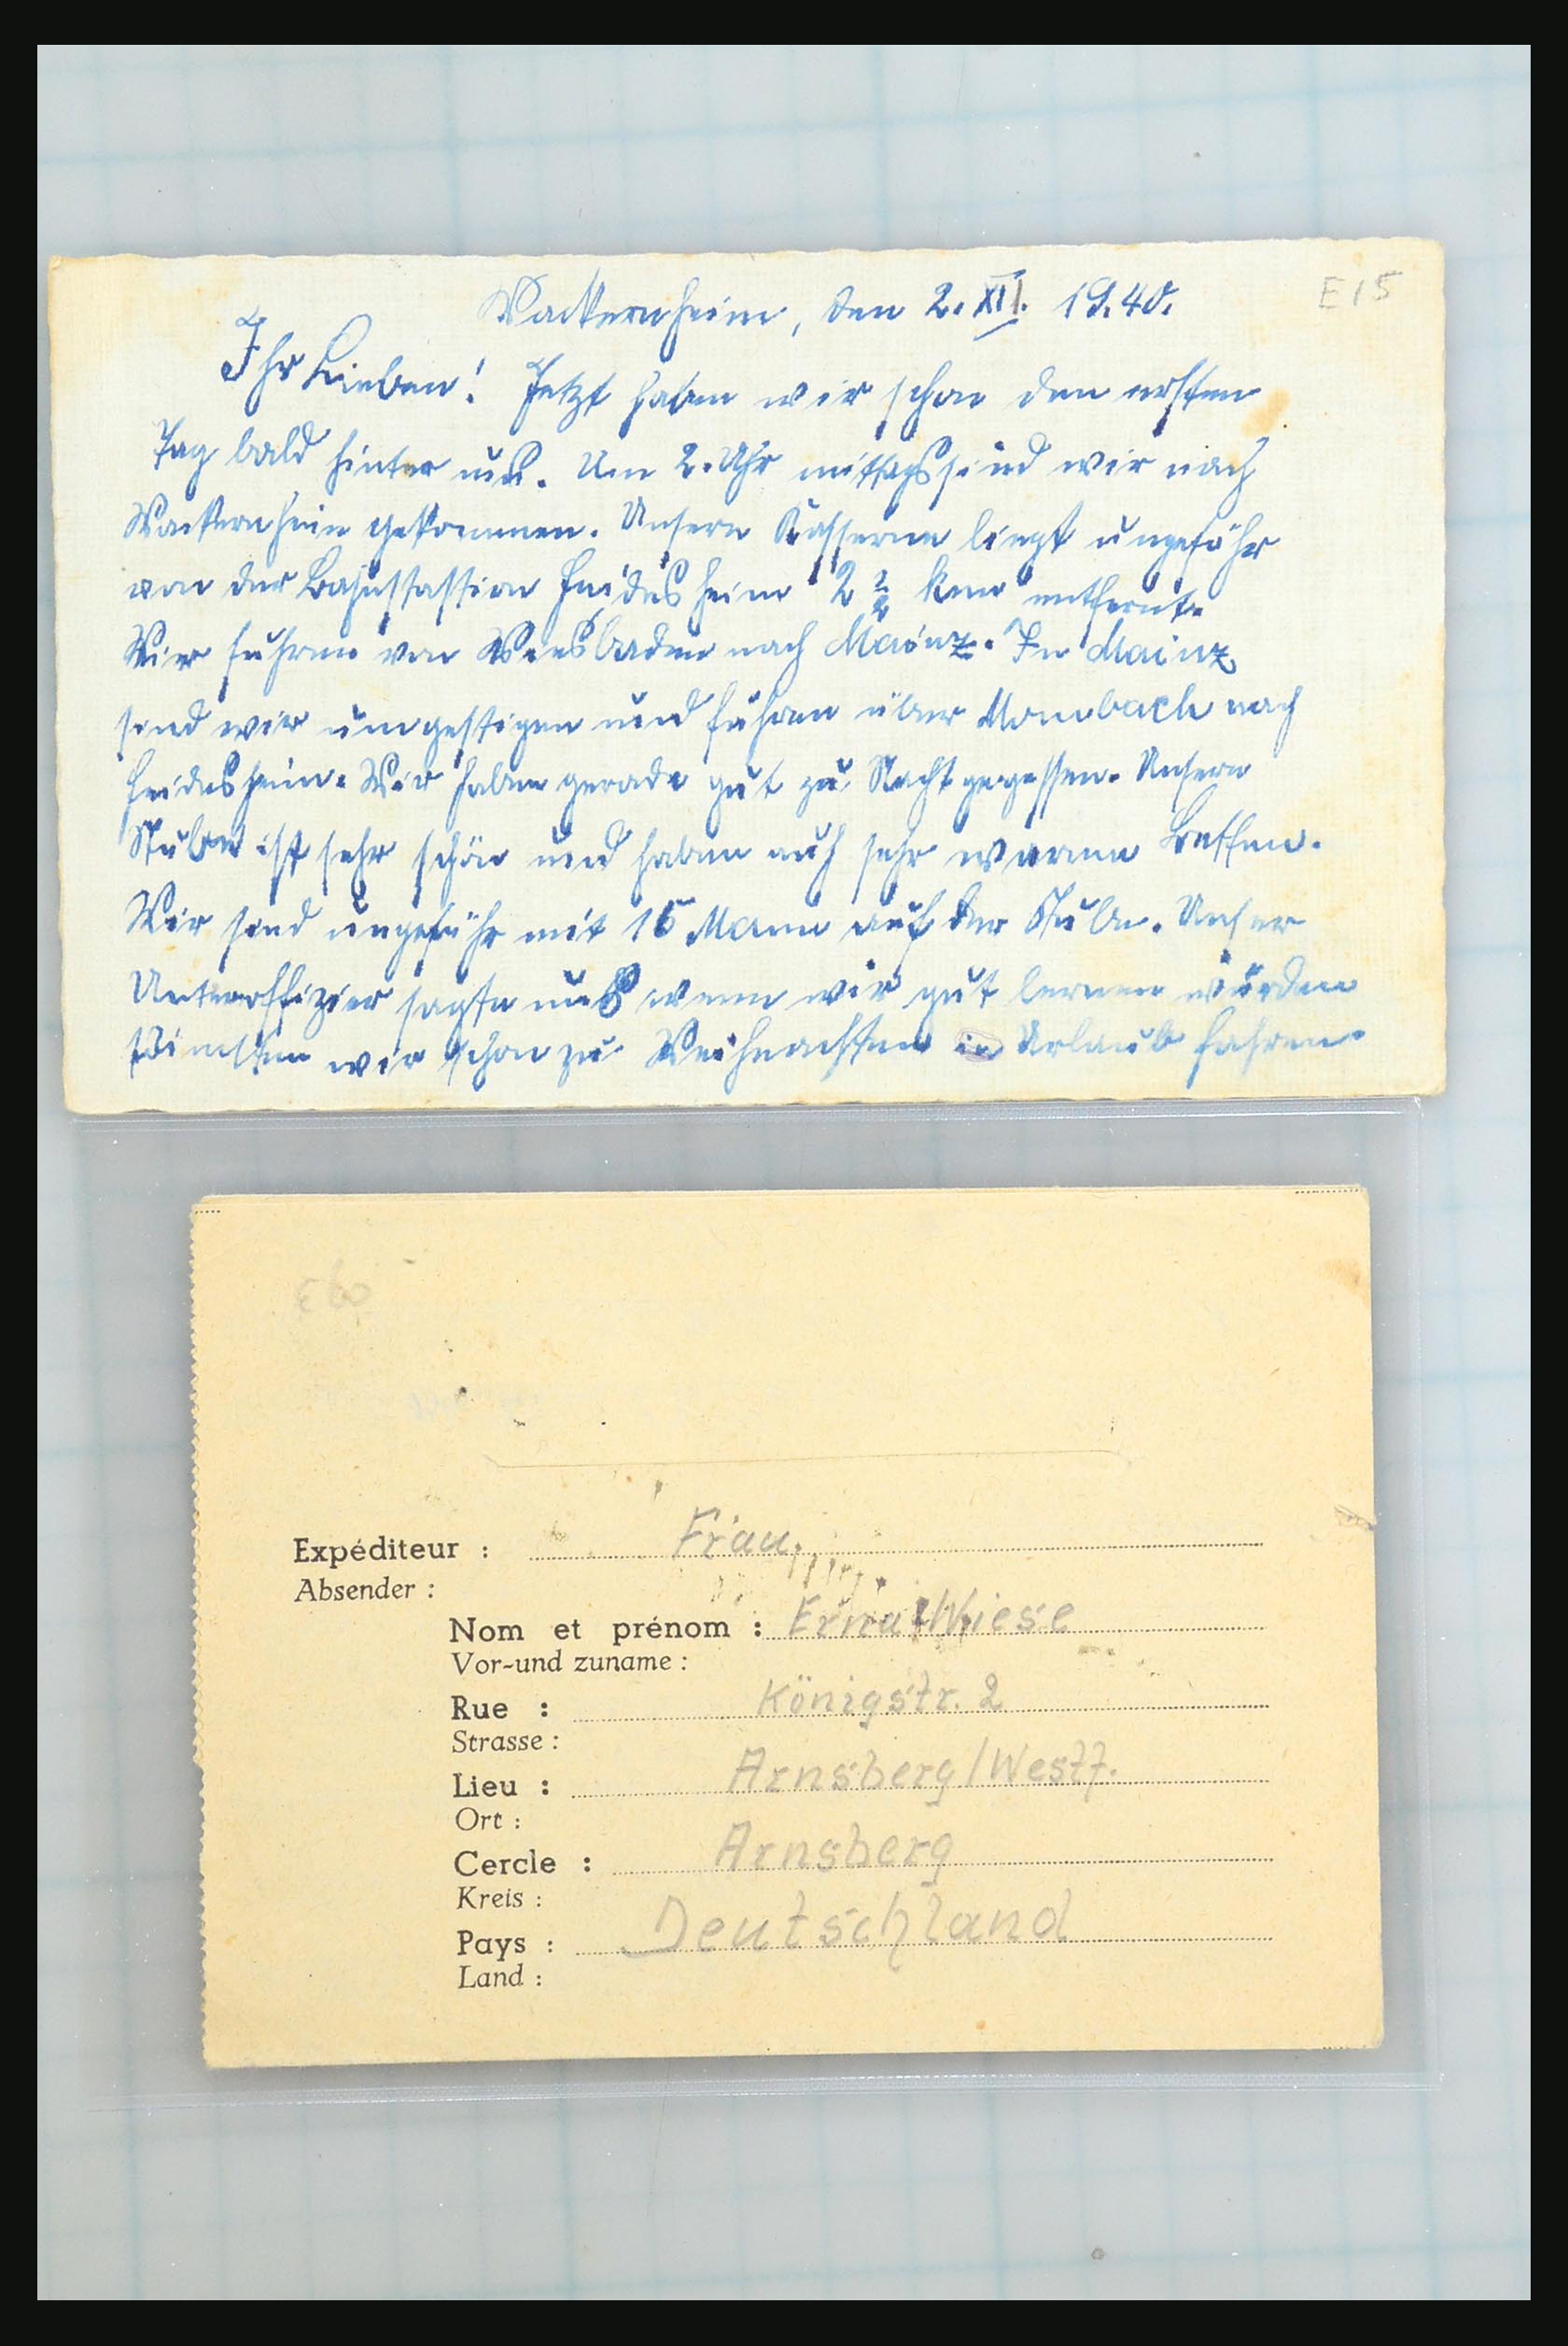 Wackernheim, den 2. XII. 19.40.
E15
Ihr Lieben! Jetzt haben wir schon den ersten
Tag bald hinter uns. Um 2. Uhr mittags sind wir nach
Wackernheim gekommen. Unsere Kasserne liegt ungefähr
von der Bahnstattion Heidesheim 2 1/2 km entfernt.
Wir fuhren von Wiesbaden nach Mainz. In Mainz
sind wir umgestigen und fuhren über Mombach nach
Heidesheim. Wir haben gerade gut zu Nacht gegessen. Unsere
Stube ist sehr schön und haben auch sehr warme Betten.
Wir sind ungefähr mit 16 Mann auf der Stube. Unser
Unteroffizier sagte uns wenn wir gut lernen würden
wir schon zu Weihnachten in Urlaub fahren.
Expéditeur : Frau.
Absender :
Nom et prénom : Erna Wiese
Vor-und zuname :
Rue : Königstr. 2
Strasse :
Lieu : Arnsberg/Westf.
Ort :
Cercle : Arnsberg
Kreis :
Pays : Deutschland
Land :